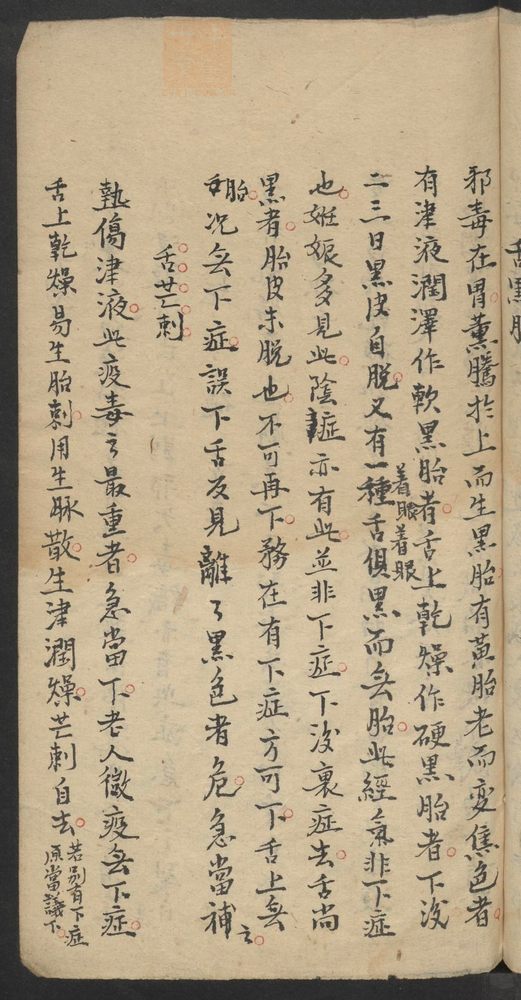 舌黑胎
邪毒在胃薰騰於上而生黑胎有黃胎老而变焦色者
有津液潤澤作軟黑胎者舌上乾燥作硬黑胎者下後
二三日黑皮自脱又有一種舌俱黑而無胎此經氣非下症
着眼着眼
也姙娠多見此陰症亦有此並非下症下後裏症去舌尚
黑者胎皮未脱也不可再下務在有下症方可下舌上無
胎
况無下症誤下舌反見離々黑色者危急當補之
舌芒刺
熱傷津液此疫毒之最重者急當下老人微疫無下症
舌上乾燥易生胎刺用生脉散生津潤燥芒刺自去
若別有下症
原當議下